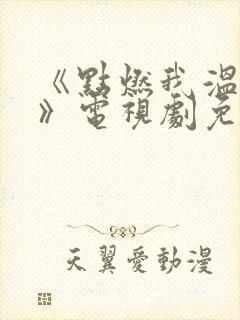 《點燃我溫
》電視劇免
天翼愛動漫